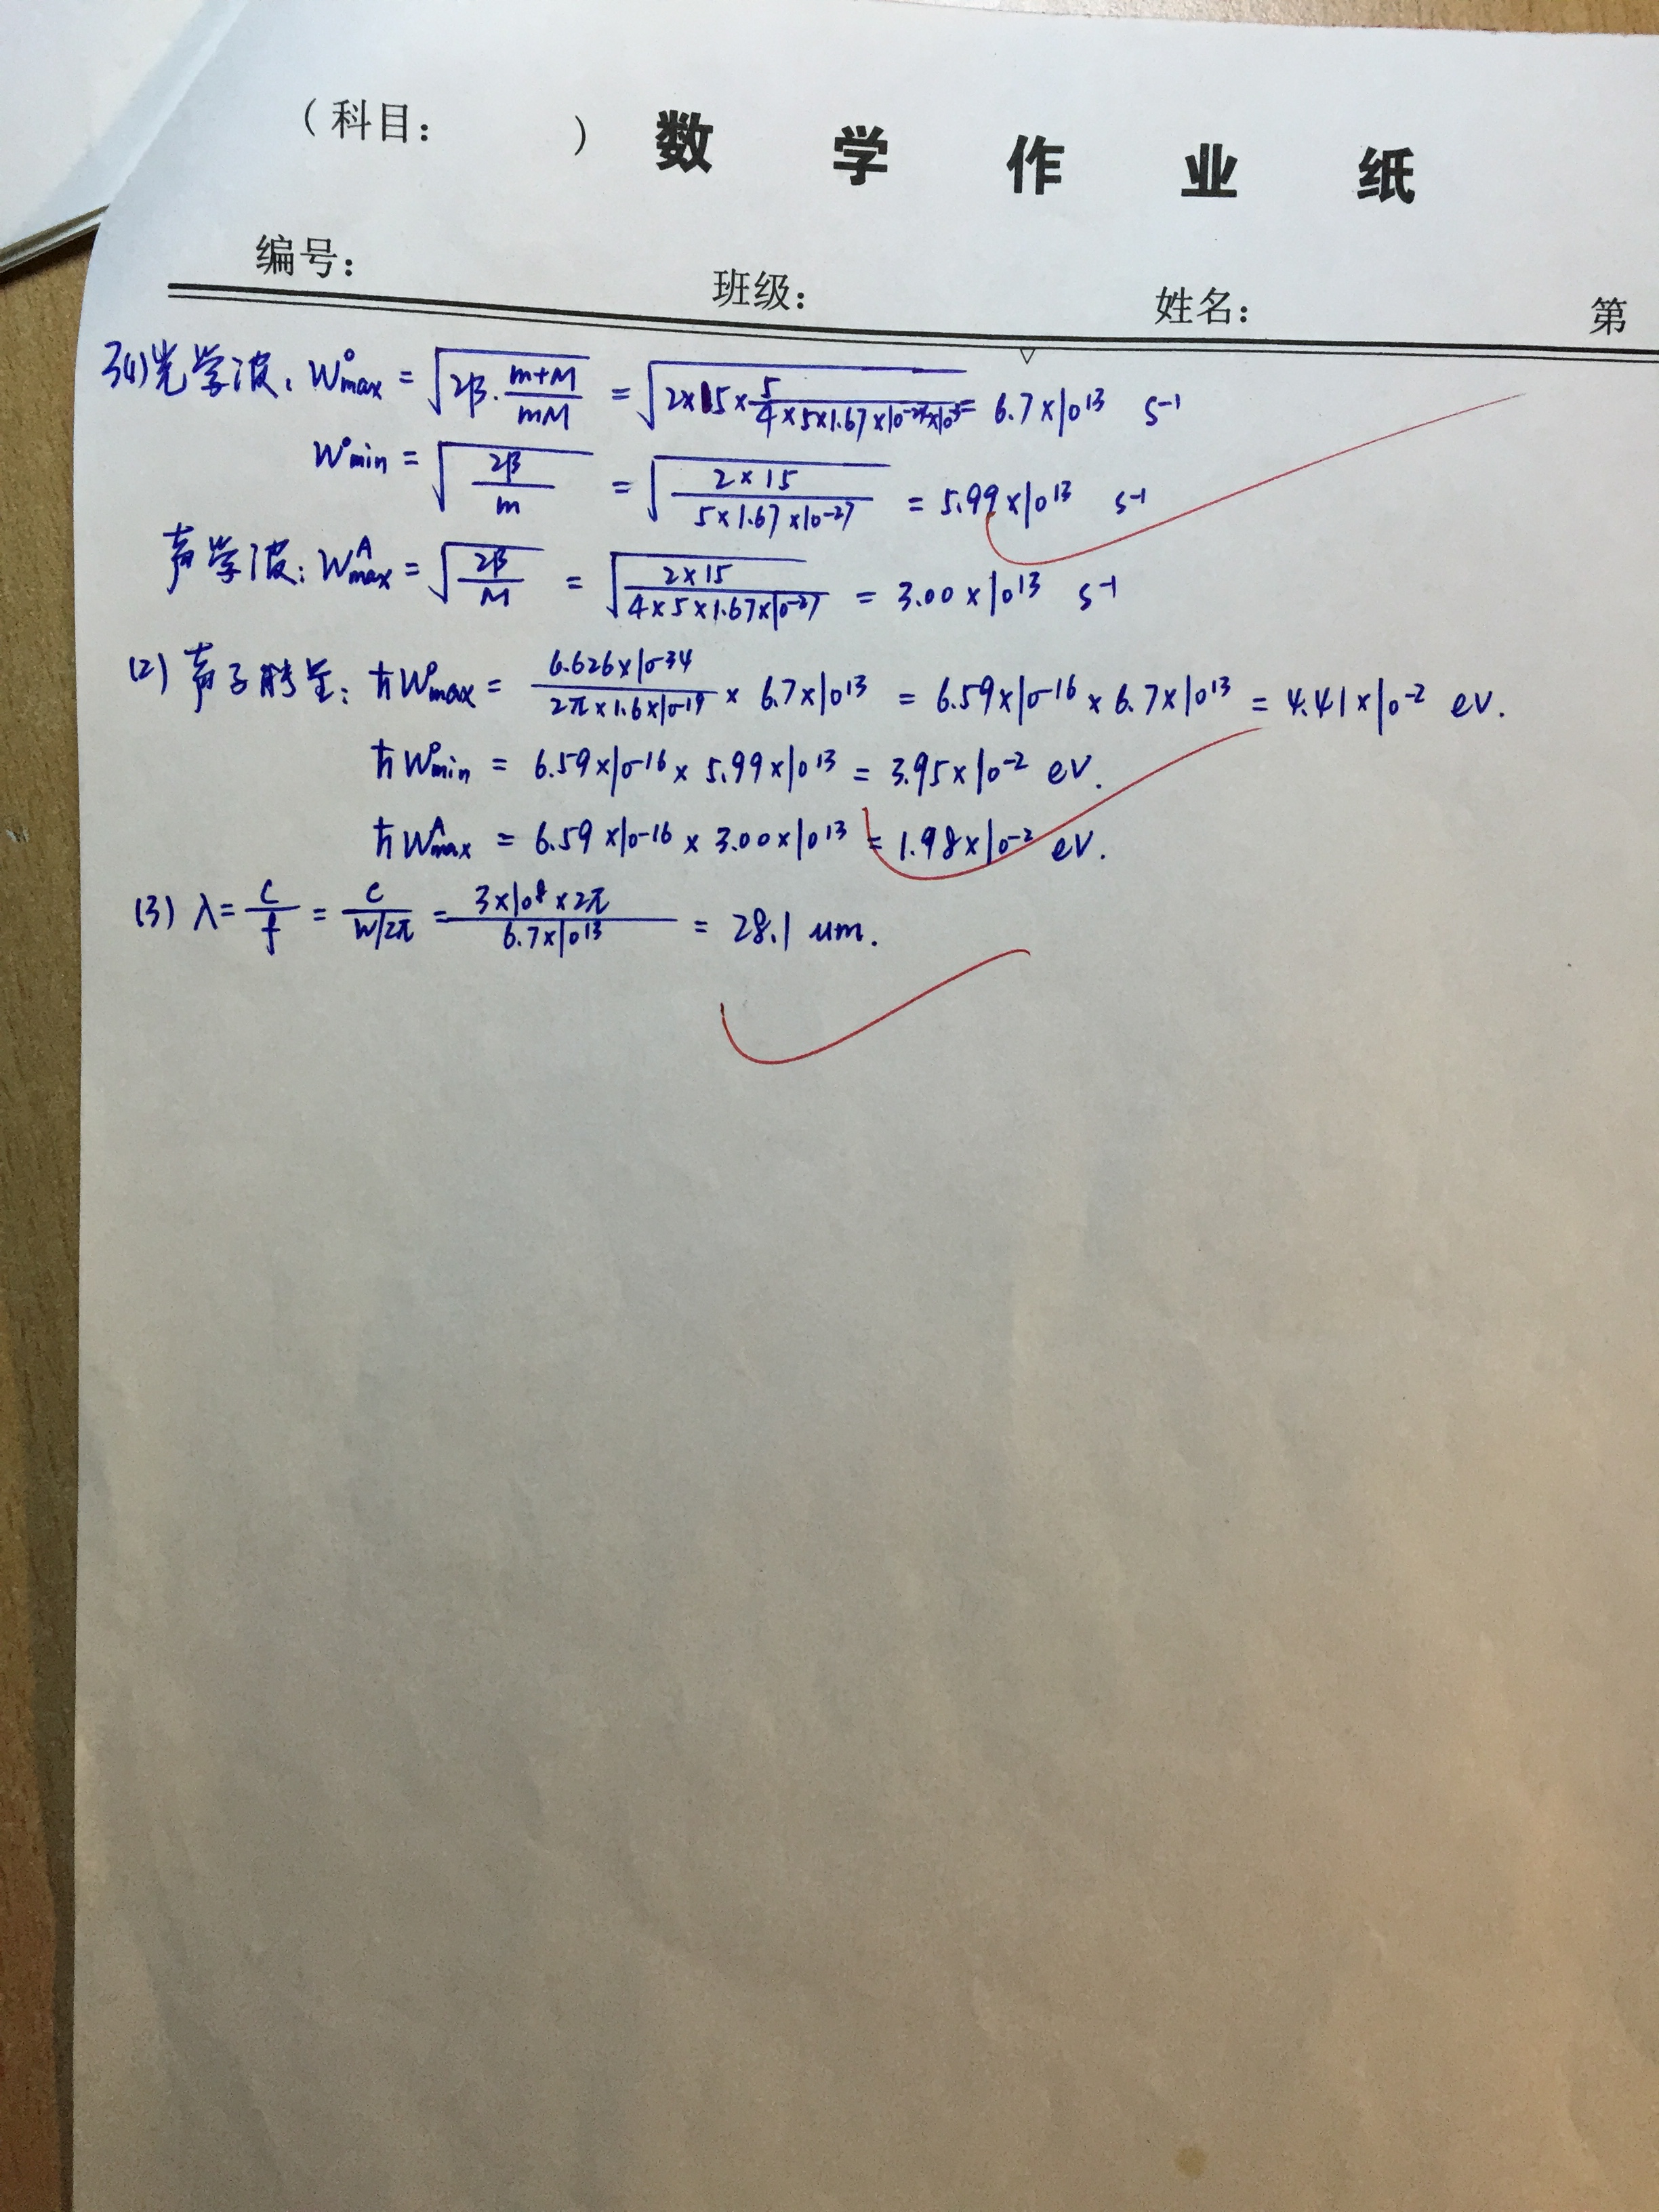 (科目: ) 数学作业纸
编号: 班级: 姓名: 第
3(1)光学波: W°max = √(2β·(m+M)/(mM)) = √(2×15×5/(4×5×1.67×10⁻²⁷)) = 6.7×10¹³ s⁻¹
W°min = √(2β/m) = √((2×15)/(5×1.67×10⁻²⁷)) = 5.99×10¹³ s⁻¹
声学波: Wᴬmax = √(2β/M) = √((2×15)/(4×5×1.67×10⁻²⁷)) = 3.00×10¹³ s⁻¹
(2) 声子能量: ħW°max = (6.626×10⁻³⁴)/(2π×1.6×10⁻¹⁹) × 6.7×10¹³ = 6.59×10⁻¹⁶ × 6.7×10¹³ = 4.41×10⁻² eV.
ħW°min = 6.59×10⁻¹⁶ × 5.99×10¹³ = 3.95×10⁻² eV.
ħWᴬmax = 6.59×10⁻¹⁶ × 3.00×10¹³ = 1.98×10⁻² eV.
(3) λ = c/f = c/(W/2π) = (3×10⁸×2π)/(6.7×10¹³) = 28.1 um.